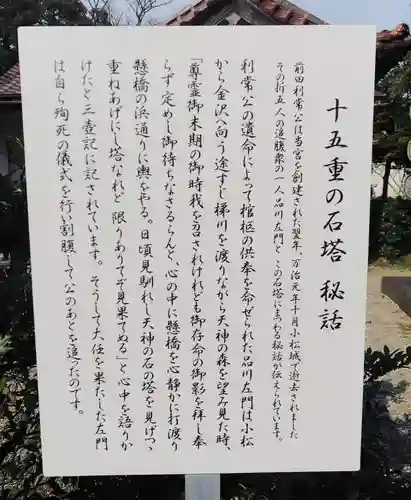 十五重の石塔 秘話
前田利常公は当宮を創建された翌年、万治元年十月小松城で逝去されました
その折五人の追腹衆の一人品川左門とこの石塔にまつわる秘話が伝えられています。
利常公の遺命によって棺柩の供奉を命ぜられた品川左門は小松
から金沢へ向う途すじ梯川を渡りながら天神の森を望み見た時、
「尊霊御末期の御時我を召されけれども御存命の御影を拝し奉
らず定めし御待ちなさるらんと、心の中に懸橋を心静かに打渡り
懸橋の浜通りに輿をやる。日頃見馴れし天神の石の塔を見げつゝ
重ねあげにし塔なれど 限りありてぞ見果てぬる」と心中を語りか
けたと三壺記に記されています。そうして大任を果たした左門
は自ら殉死の儀式を行い割腹して公のあとを追ったのです。